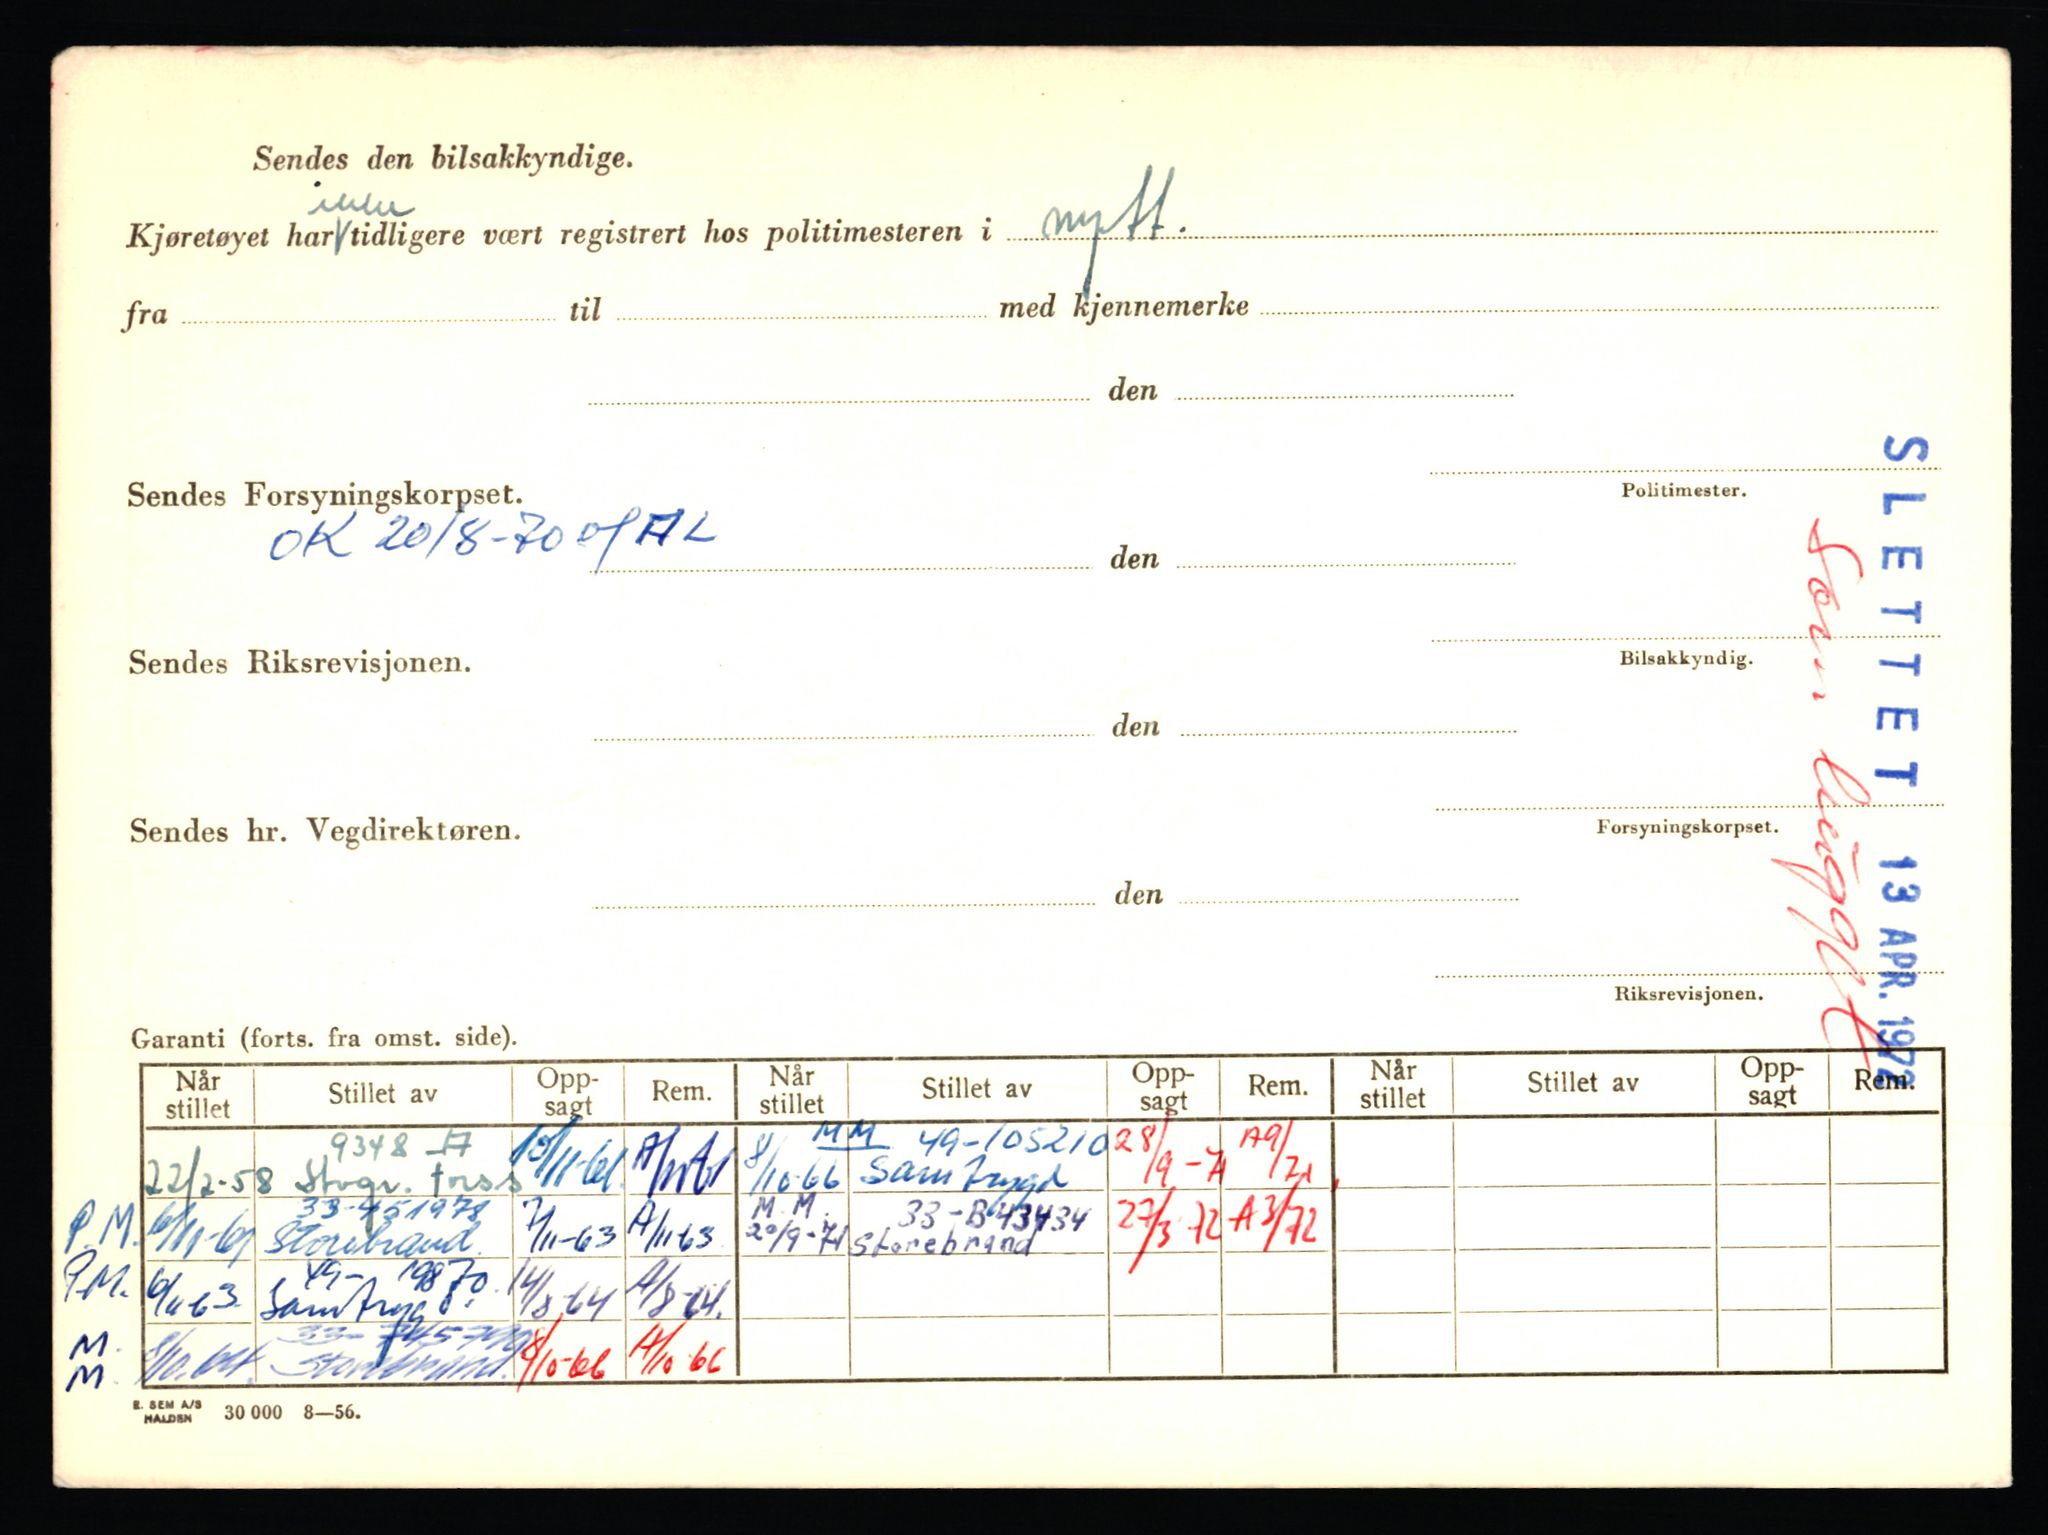 Sendes den bilsakkyndige.
ikke
Kjøretøyet har tidligere vært registrert hos politimesteren i nytt.
fra til med kjennemerke
den
Politimester.
Sendes Forsyningskorpset.
OK 20/8-70 AL
den
Bilsakkyndig.
Sendes Riksrevisjonen.
den
Forsyningskorpset.
Sendes hr. Vegdirektøren.
den
Riksrevisjonen.
SLETTET 13 APR. 1972
Som
Garanti (forts. fra omst. side).
Når stillet Stillet av Opp-sagt Rem. Når stillet Stillet av Opp-sagt Rem. Når stillet Stillet av Opp-sagt Rem.
9348 MM 49-105210
22/2-58 Stvgr. 8/10-66 Samtrygd 28/9-71 A9/71
33-451978 M.M. 33-B43434
P.M. Storebrand 7/11-63 A/11-63 20/9-71 Storebrand 27/3-72 A3/72
49-19870
P.M. 6/11-63 Samtrygd. 14/8-64 A/8-64.
M. Storebrand. 8/10-66 A/10-66
M.
E. SEM A/S
HALDEN 30 000 8—56.